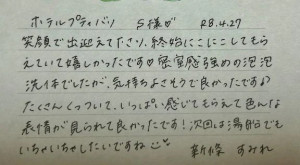 ホテルプティバリ S様♡ R8.4.27
笑顔で出迎えて下さり、終始にこにこしてもら
えていて嬉しかったです♡密室感強めの泡泡
洗体でしたが、気持ちよさそうで良かったです♪
たくさんくっついて、いっぱい感じてもらえて色んな
表情が見られて良かったです!次回は湯船でも
いちゃいちゃしたいですね
新條 すみれ